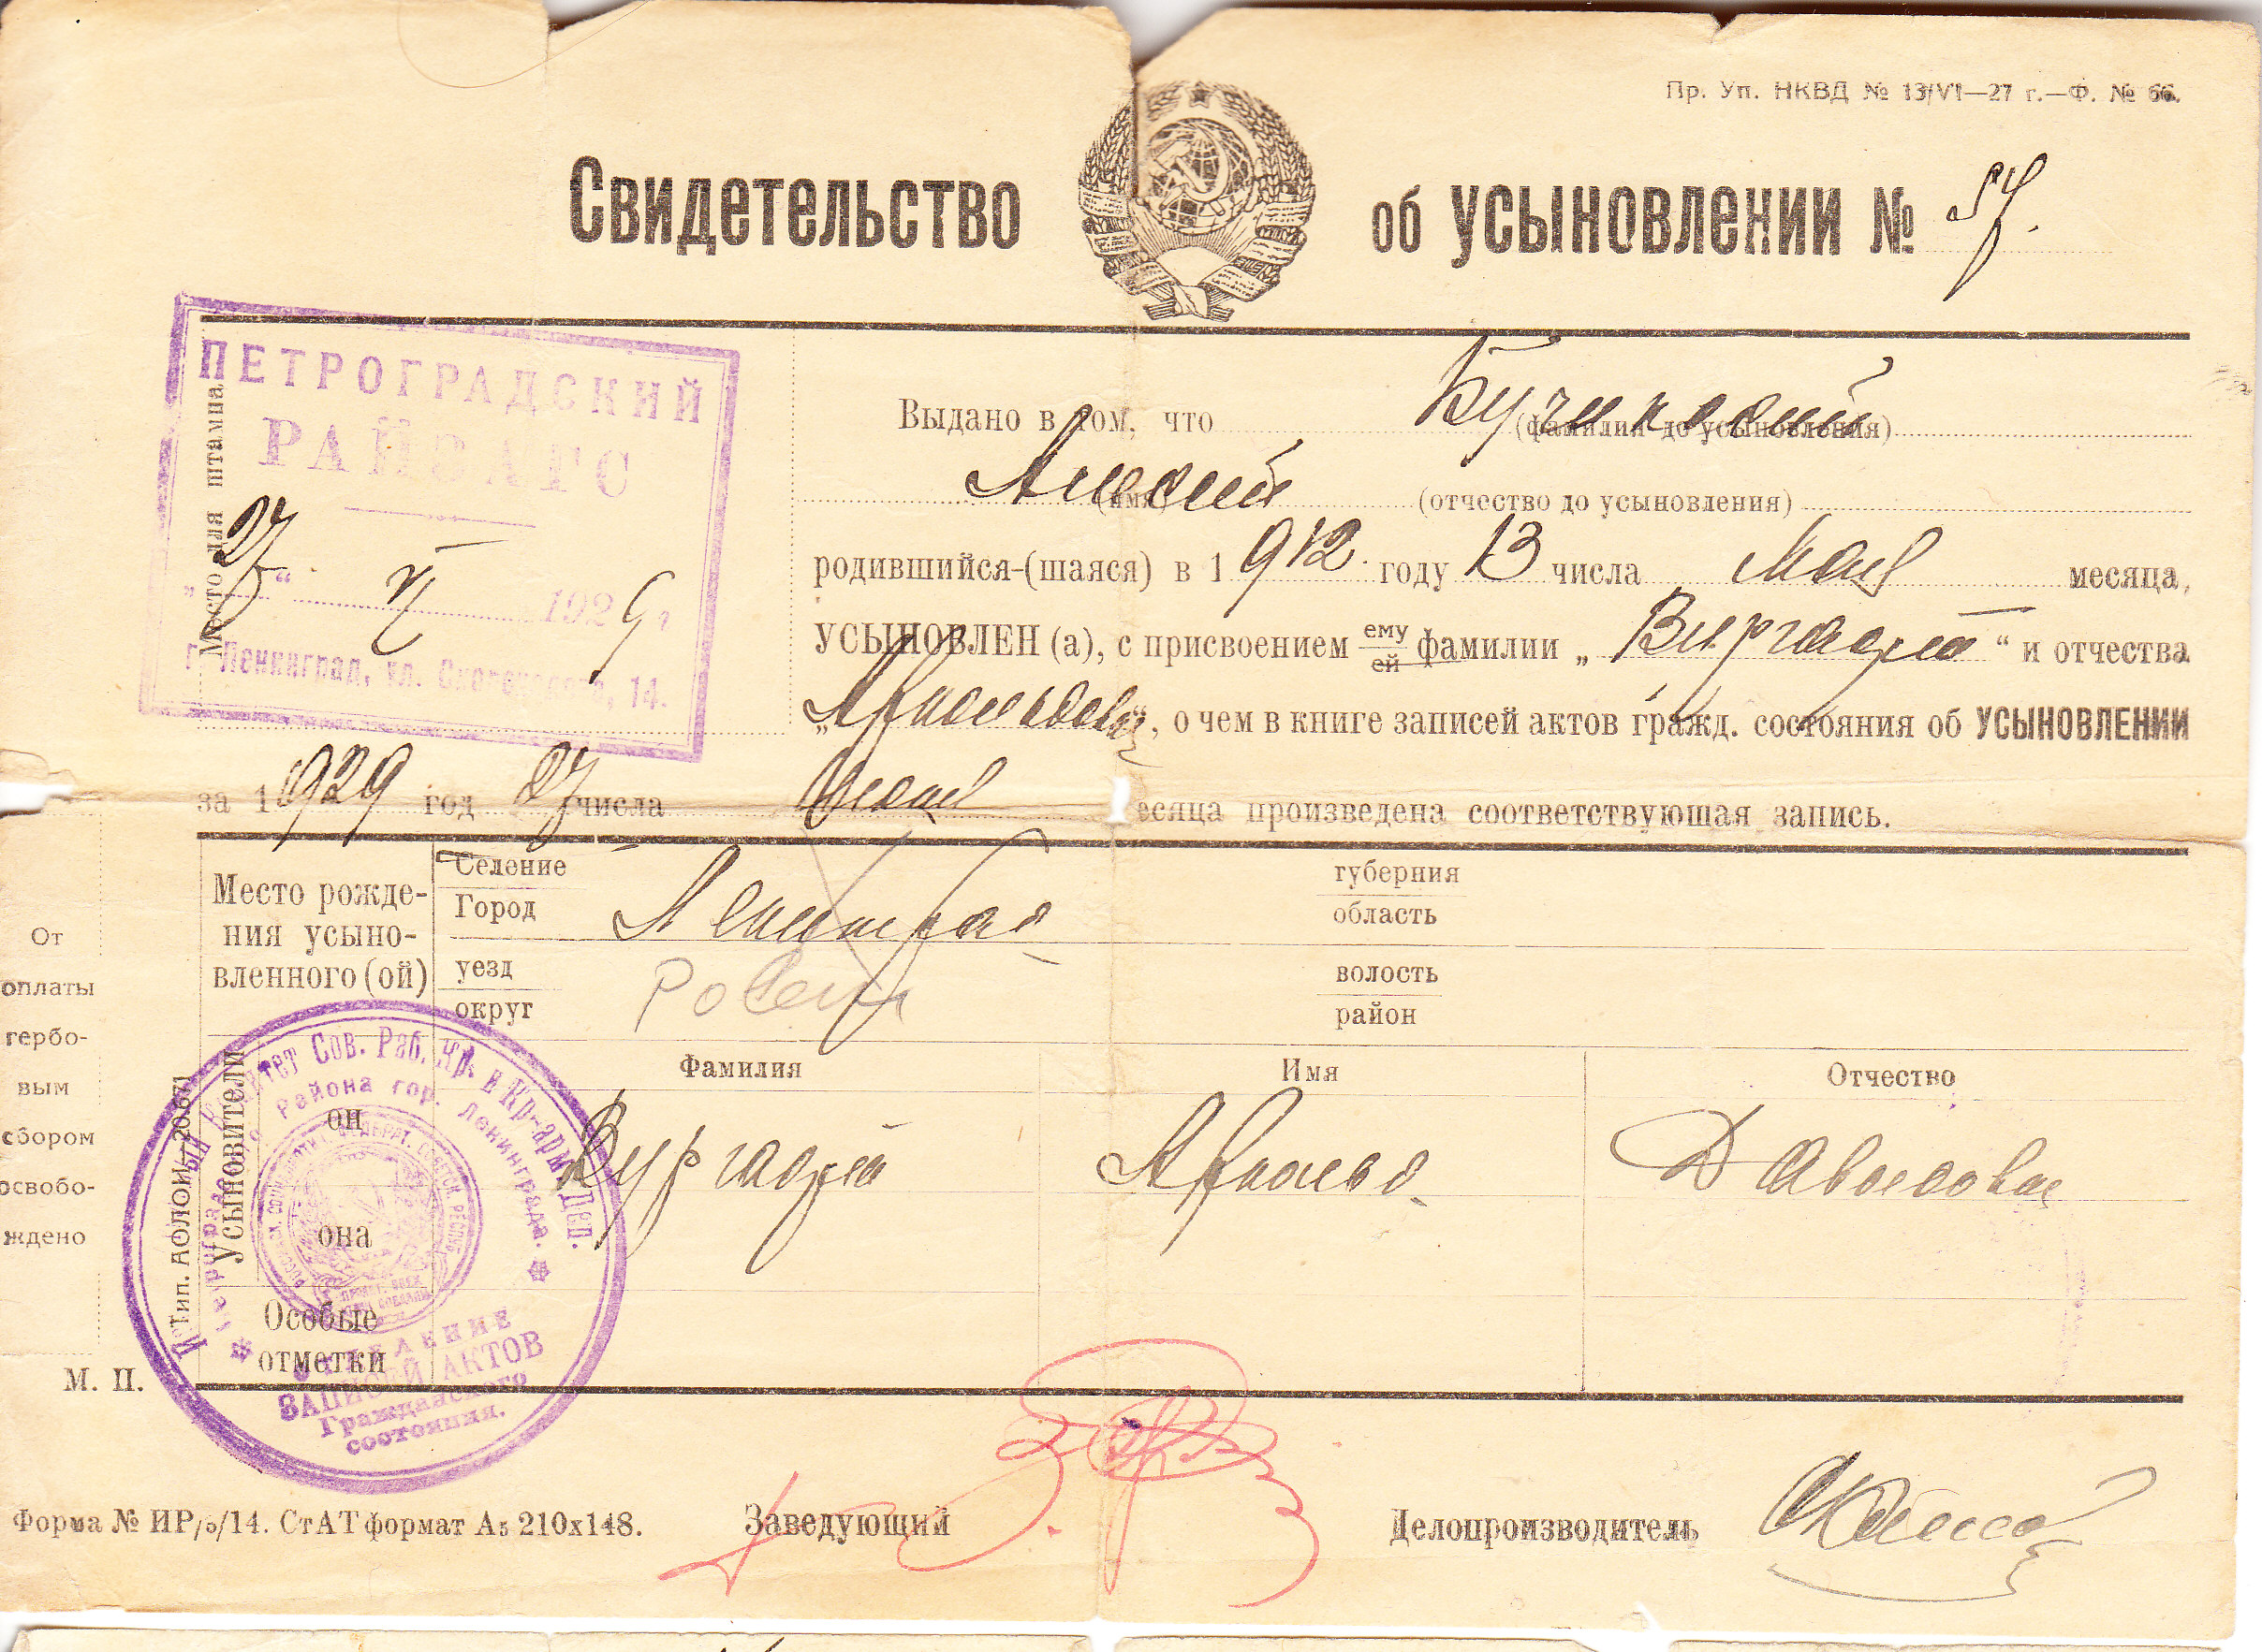 Пр. Уп. НКВД № 13/VI—27 г.—Ф. № 66.
Свидетельство об усыновлении № 57.
ПЕТРОГРАДСКИЙ
РАЙЗАГС
Место для штампа
"27" V 1929 г.
г. Ленинград, ул.
14.
Выдано в том, что
(фамилия до усыновления)
Алексей
(имя) (отчество до усыновления)
родившийся-(шаяся) в 1912 году 13 числа Мая месяца,
УСЫНОВЛЕН (а), с присвоением ему/ей фамилии „ “ и отчества
„Арнольдович“, о чем в книге записей актов гражд. состояния об УСЫНОВЛЕНИИ
за 1929 год 27 числа месяца произведена соответствующая запись.
Место рожде-
ния усыно-
вленного (ой)
Селение
Город Ленинград
уезд
округ
губерния
область
волость
район
От
оплаты
гербо-
вым
сбором
освобо-
ждено
М. П.
Усыновители
Фамилия Имя Отчество
он Арнольд Давыдович
она
Особые
отметки
Сов. Раб. Кр. и Кр-арм. Деп.
Района гор. Ленинграда.
ОТДЕЛЕНИЕ
ЗАПИСЕЙ АКТОВ
Гражданского
состояния.
Форма № ИР/5/14. СтАТ формат А5 210х148.
Заведующий
Делопроизводитель